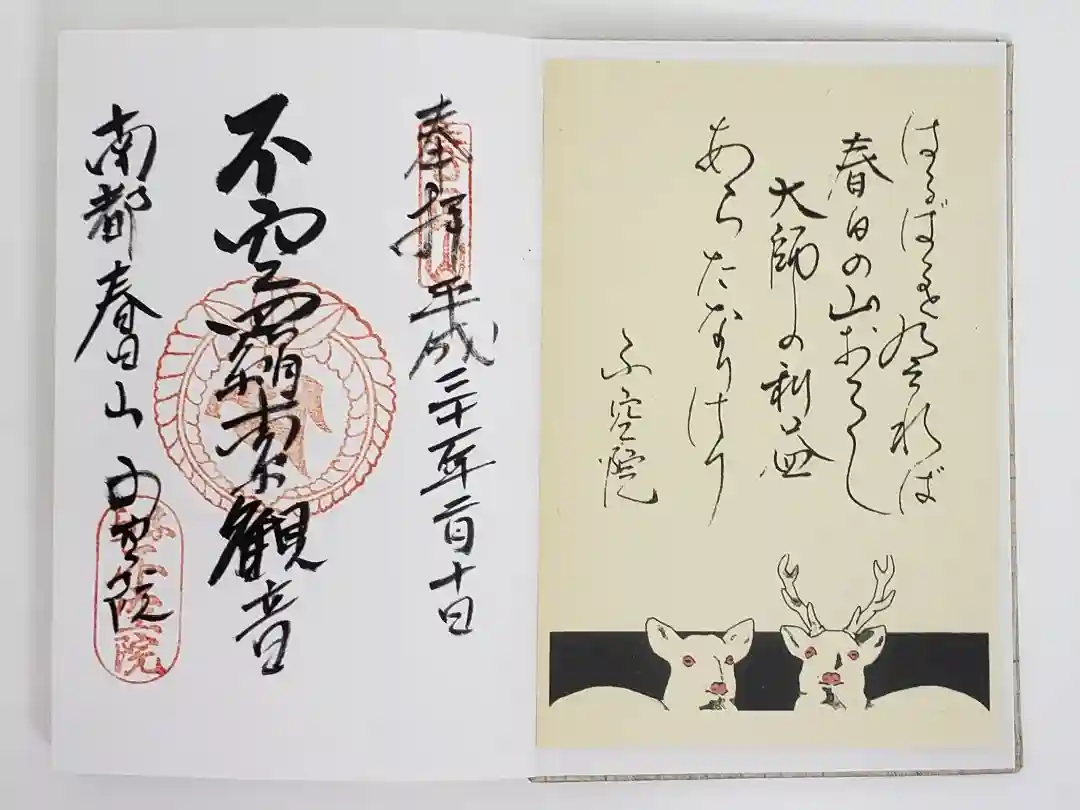 はるばると
れば
春日の山おろし
大師の利益
あらたなりけり
不空院
奉拝 平成三十年二月十日
不空羂索観音
南都春日山 不空院